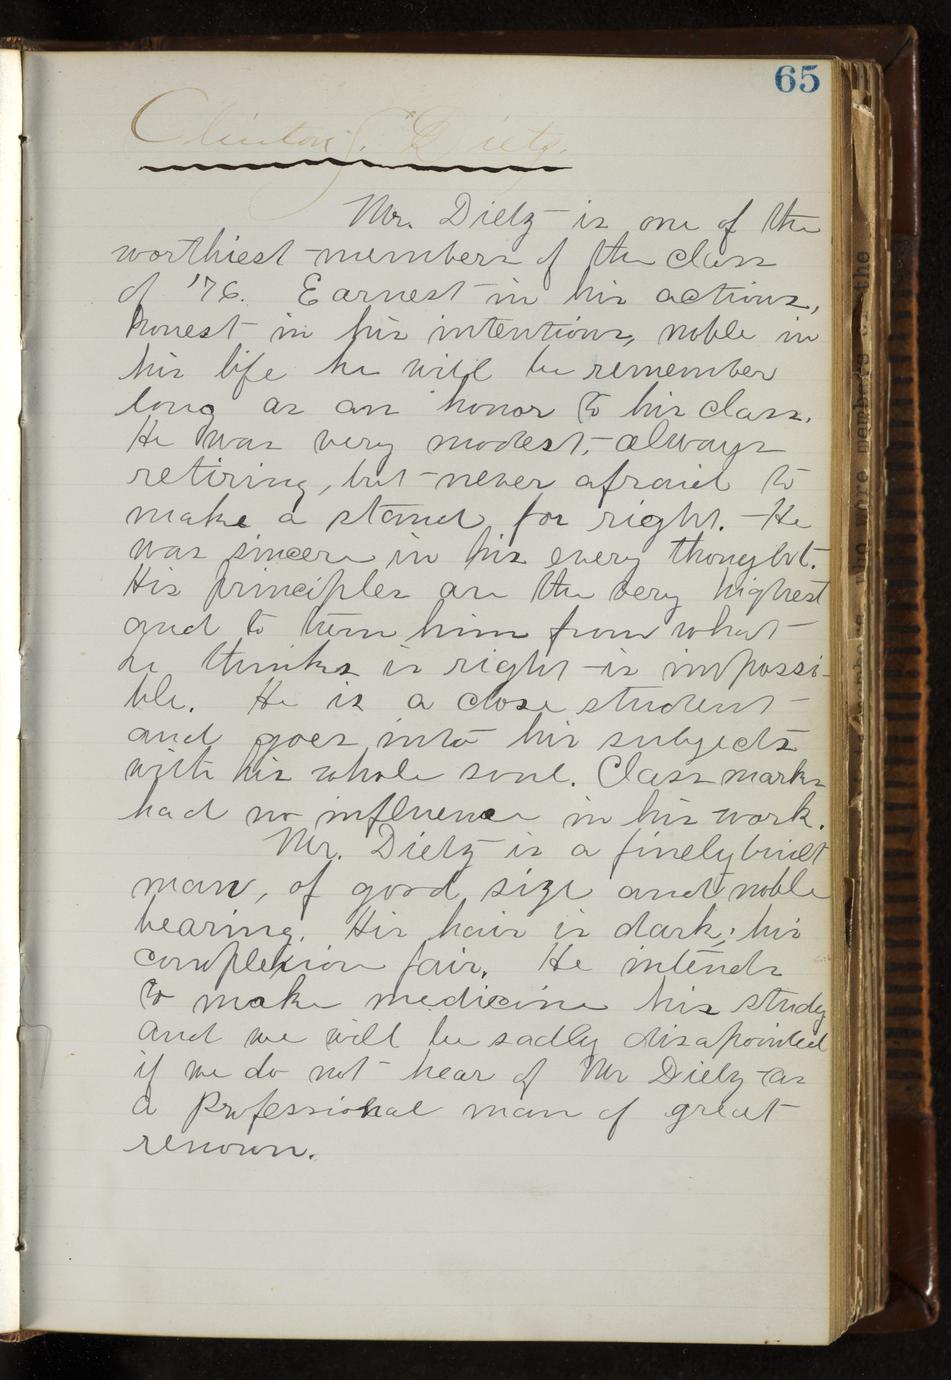 65
Clinton J. Dietz.
Mr. Dietz is one of the
worthiest members of the class
of '76. Earnest in his actions,
honest in his intentions, noble in
his life he will be remember
long as an honor to his class.
He was very modest, always
retiring, but never afraid to
make a stand for right. He
was sincere in his every thoughbt.
His principles are the very highest
and to turn him from what
he thinks is right is impossi-
ble. He is a close student
and goes into his subjects
with his whole soul. Class marks
had no influence in his work.
Mr. Dietz is a finely built
man, of good size and noble
bearing. His hair is dark; his
complexion fair. He intends
to make medicine his study
and we will be sadly disapointed
if we do not hear of Mr Dietz as
a Professional man of great
renown.
who were members of the